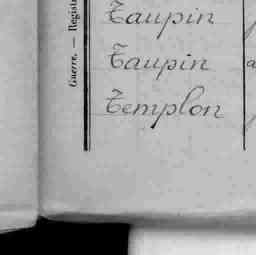 Taupin
Taupin
Templon
Guerre. — Regist